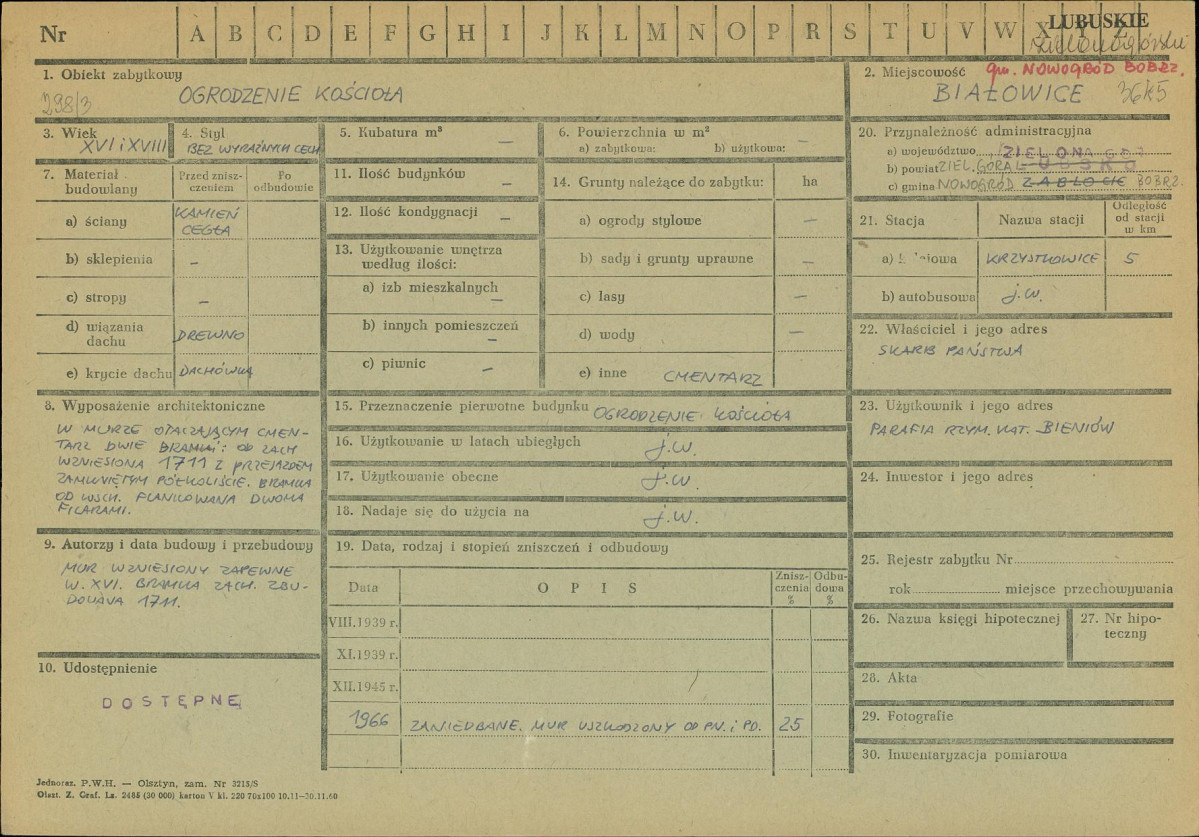 Nr A B C D E F G H I J K L M N O P R S T U V W X Y Z
LUBUSKIE
zielonogórskie
1. Obiekt zabytkowy
298/3
OGRODZENIE KOŚCIOŁA
2. Miejscowość
gm. NOWOGRÓD BOBRZ.
BIAŁOWICE
36K5
3. Wiek
XVI i XVIII
4. Styl
BEZ WYRAŹNYCH CECH
5. Kubatura m³ —
6. Powierzchnia w m²
a) zabytkowa: b) użytkowa: —
7. Materiał budowlany
Przed zniszczeniem
Po odbudowie
a) ściany KAMIEŃ
CEGŁA
b) sklepienia —
c) stropy —
d) wiązania dachu DREWNO
e) krycie dachu DACHÓWKA
11. Ilość budynków —
12. Ilość kondygnacji —
13. Użytkowanie wnętrza
według ilości:
a) izb mieszkalnych —
b) innych pomieszczeń —
c) piwnic —
14. Grunty należące do zabytku: ha
a) ogrody stylowe —
b) sady i grunty uprawne —
c) lasy —
d) wody —
e) inne CMENTARZ
20. Przynależność administracyjna
a) województwo ZIELONA GÓRA
b) powiat ZIEL. GÓRA LUBSKO
c) gmina NOWOGRÓD ZABŁOCIE BOBRZ.
21. Stacja
Nazwa stacji
Odległość
od stacji
w km
a) kolejowa KRZYSTKOWICE 5
b) autobusowa j.w.
22. Właściciel i jego adres
SKARB PAŃSTWA
8. Wyposażenie architektoniczne
W MURZE OTACZAJĄCYM CMEN-
TARZ DWIE BRAMKI: OD ZACH
WZNIESIONA 1711 Z PRZEJAZDEM
ZAMKNIĘTYM PÓŁKOLIŚCIE. BRAMKA
OD WSCH. FLANKOWANA DWOMA
FILARAMI.
15. Przeznaczenie pierwotne budynku OGRODZENIE KOŚCIOŁA
16. Użytkowanie w latach ubiegłych j.w.
17. Użytkowanie obecne j.w.
18. Nadaje się do użycia na j.w.
23. Użytkownik i jego adres
PARAFIA RZYM. KAT. BIENIÓW
24. Inwestor i jego adres
9. Autorzy i data budowy i przebudowy
MUR WZNIESIONY ZAPEWNE
W. XVI. BRAMKA ZACH. ZBU-
DOWANA 1711.
10. Udostępnienie
DOSTĘPNE
19. Data, rodzaj i stopień zniszczeń i odbudowy
Data
OPIS
Zniszczenia %
Odbudowa %
VIII.1939 r.
XI.1939 r.
XII.1945 r.
1966 ZANIEDBANE. MUR USZKODZONY OD PN. i PD. 25
25. Rejestr zabytku Nr
rok miejsce przechowywania
26. Nazwa księgi hipotecznej
27. Nr hipo-
teczny
28. Akta
29. Fotografie
30. Inwentaryzacja pomiarowa
Jednoraz. P.W.H. — Olsztyn, zam. Nr 3215/S
Olszt. Z. Graf. Lz. 2485 (30 000) karton V kl. 220 70x100 10.11—30.11.60